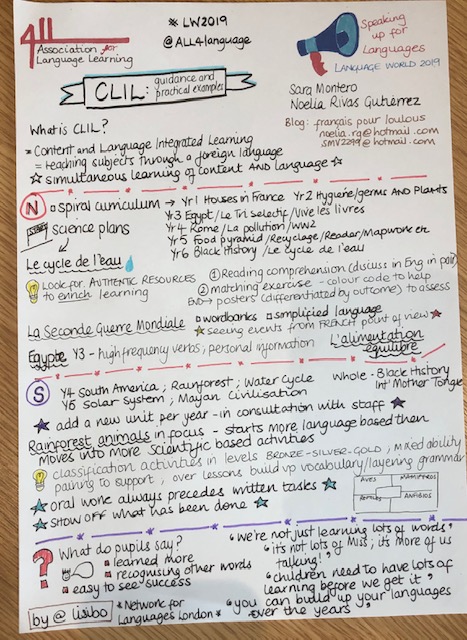 ALL
Association for
Language Learning
* LW2019
@ALL4language
Speaking
up for
Languages
LANGUAGE WORLD 2019
CLIL: guidance and
practical examples
Sara Montero
Noelia Rivas Gutiérrez
Blog: français pour loulous
noelia.rg@hotmail.com
smv2299@hotmail.com
What is CLIL?
= Content and Language Integrated Learning
= teaching subjects through a foreign language
simultaneous learning of content AND language
N spiral curriculum → Yr1 Houses in France Yr2 Hygiene/germs AND Plants
Yr3 Egypt/Le Tri Selectif/Vive les livres
Yr4 Rome/La pollution/WW2
Yr5 Food pyramid/Recyclage/Reader/Mapwork etc
Yr6 Black History/Le cycle de l'eau
START science plans
Le cycle de l'eau
Look for AUTHENTIC RESOURCES
to enrich learning
① Reading comprehension (discuss in Eng in pair)
② matching exercise - colour code to help
END → posters (differentiated by outcome) to assess
La Seconde Guerre Mondiale
wordbanks simplified language
seeing events from FRENCH point of view
Egypte Y3 - high frequency verbs; personal information
L'alimentation
équilibre
S Y4 South America; Rainforest; Water Cycle
Y5 Solar System; Mayan Civilisation
Whole - Black History
Int Mother Tongue
add a new unit per year - in consultation with staff
Rainforest animals in focus - starts more language based then
moves into more scientific based activities
classification activities in levels BRONZE-SILVER-GOLD; mixed ability
pairing to support, over lessons build up vocabulary/layering grammar
oral work always precedes written tasks
SHOW OFF what has been done
AVES MAMIFEROS
REPTILES ANFIBIOS
? What do pupils say?
learned more
recognising other words
easy to see success
"we're not just learning lots of words"
"it's not lots of Miss; it's more of us
talking!"
"children need to have lots of
learning before we get it"
"you can build up your languages
over the years"
by @lisibo
*Network for
Languages London*